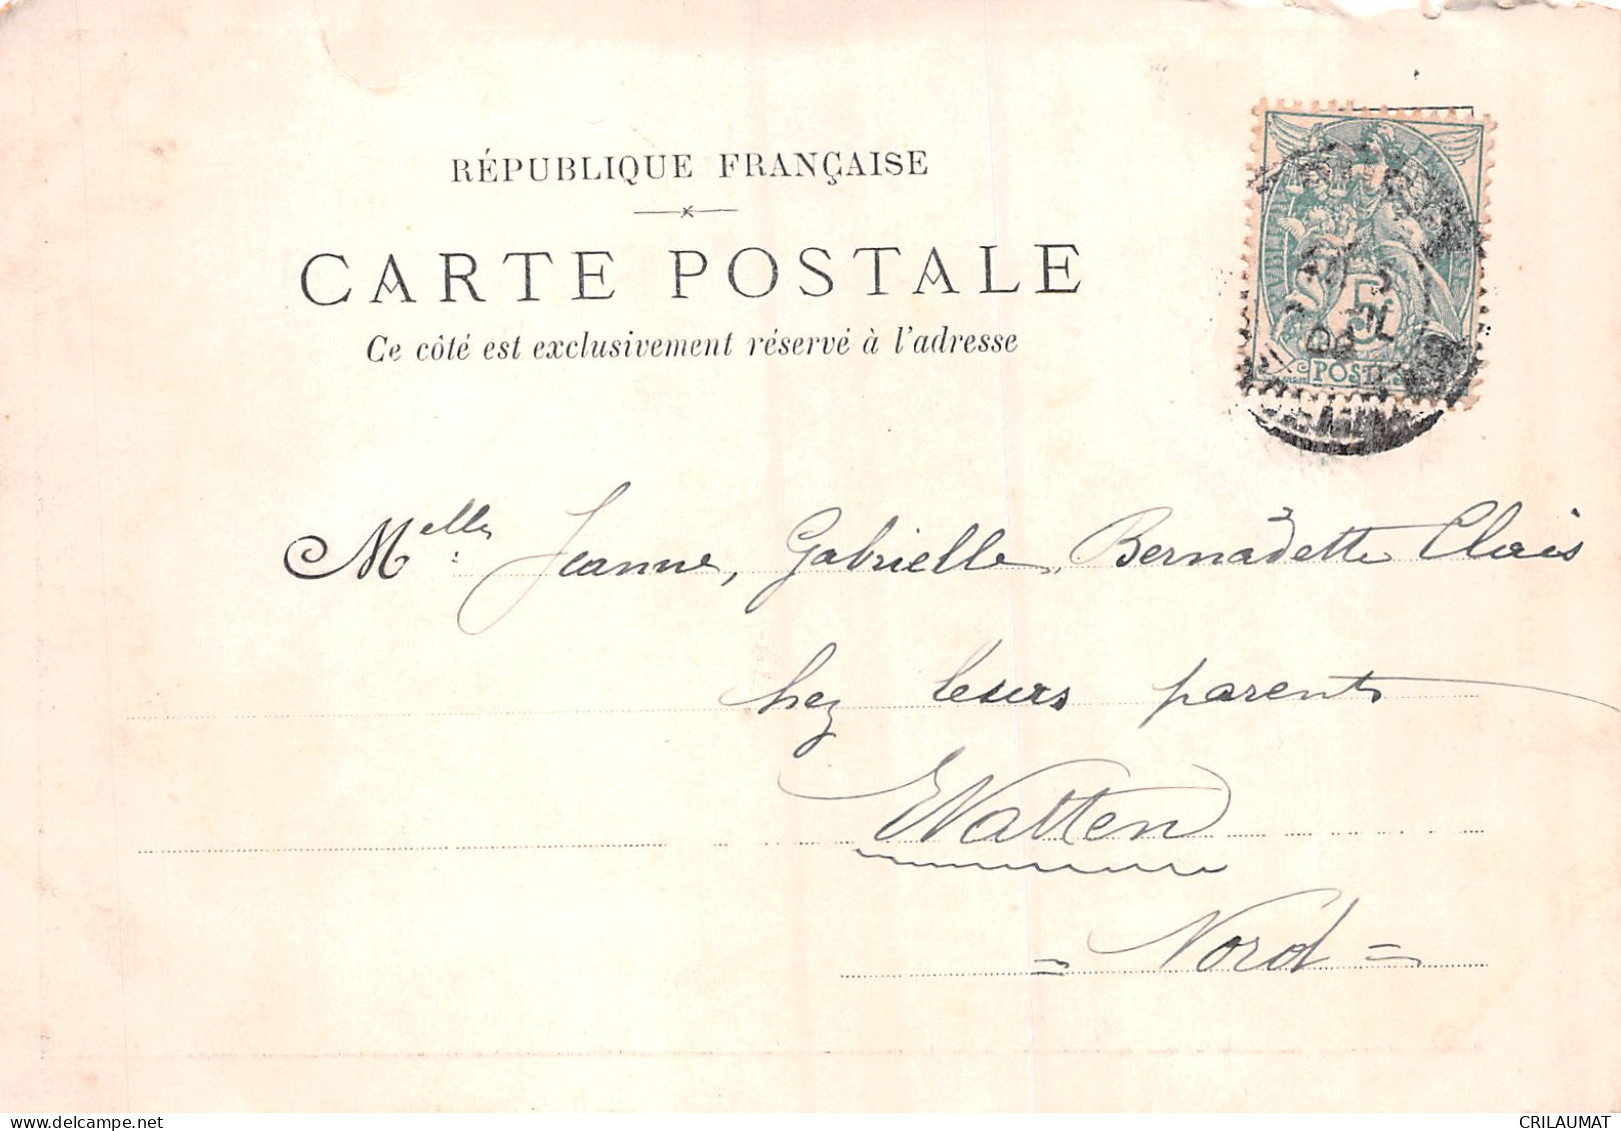 RÉPUBLIQUE FRANÇAISE
CARTE POSTALE
Ce côté est exclusivement réservé à l'adresse
5
POSTES
Melles Jeanne, Gabrielle, Bernadette Clais
chez leurs parents
Watten
= Nord =
CRILAUMAT